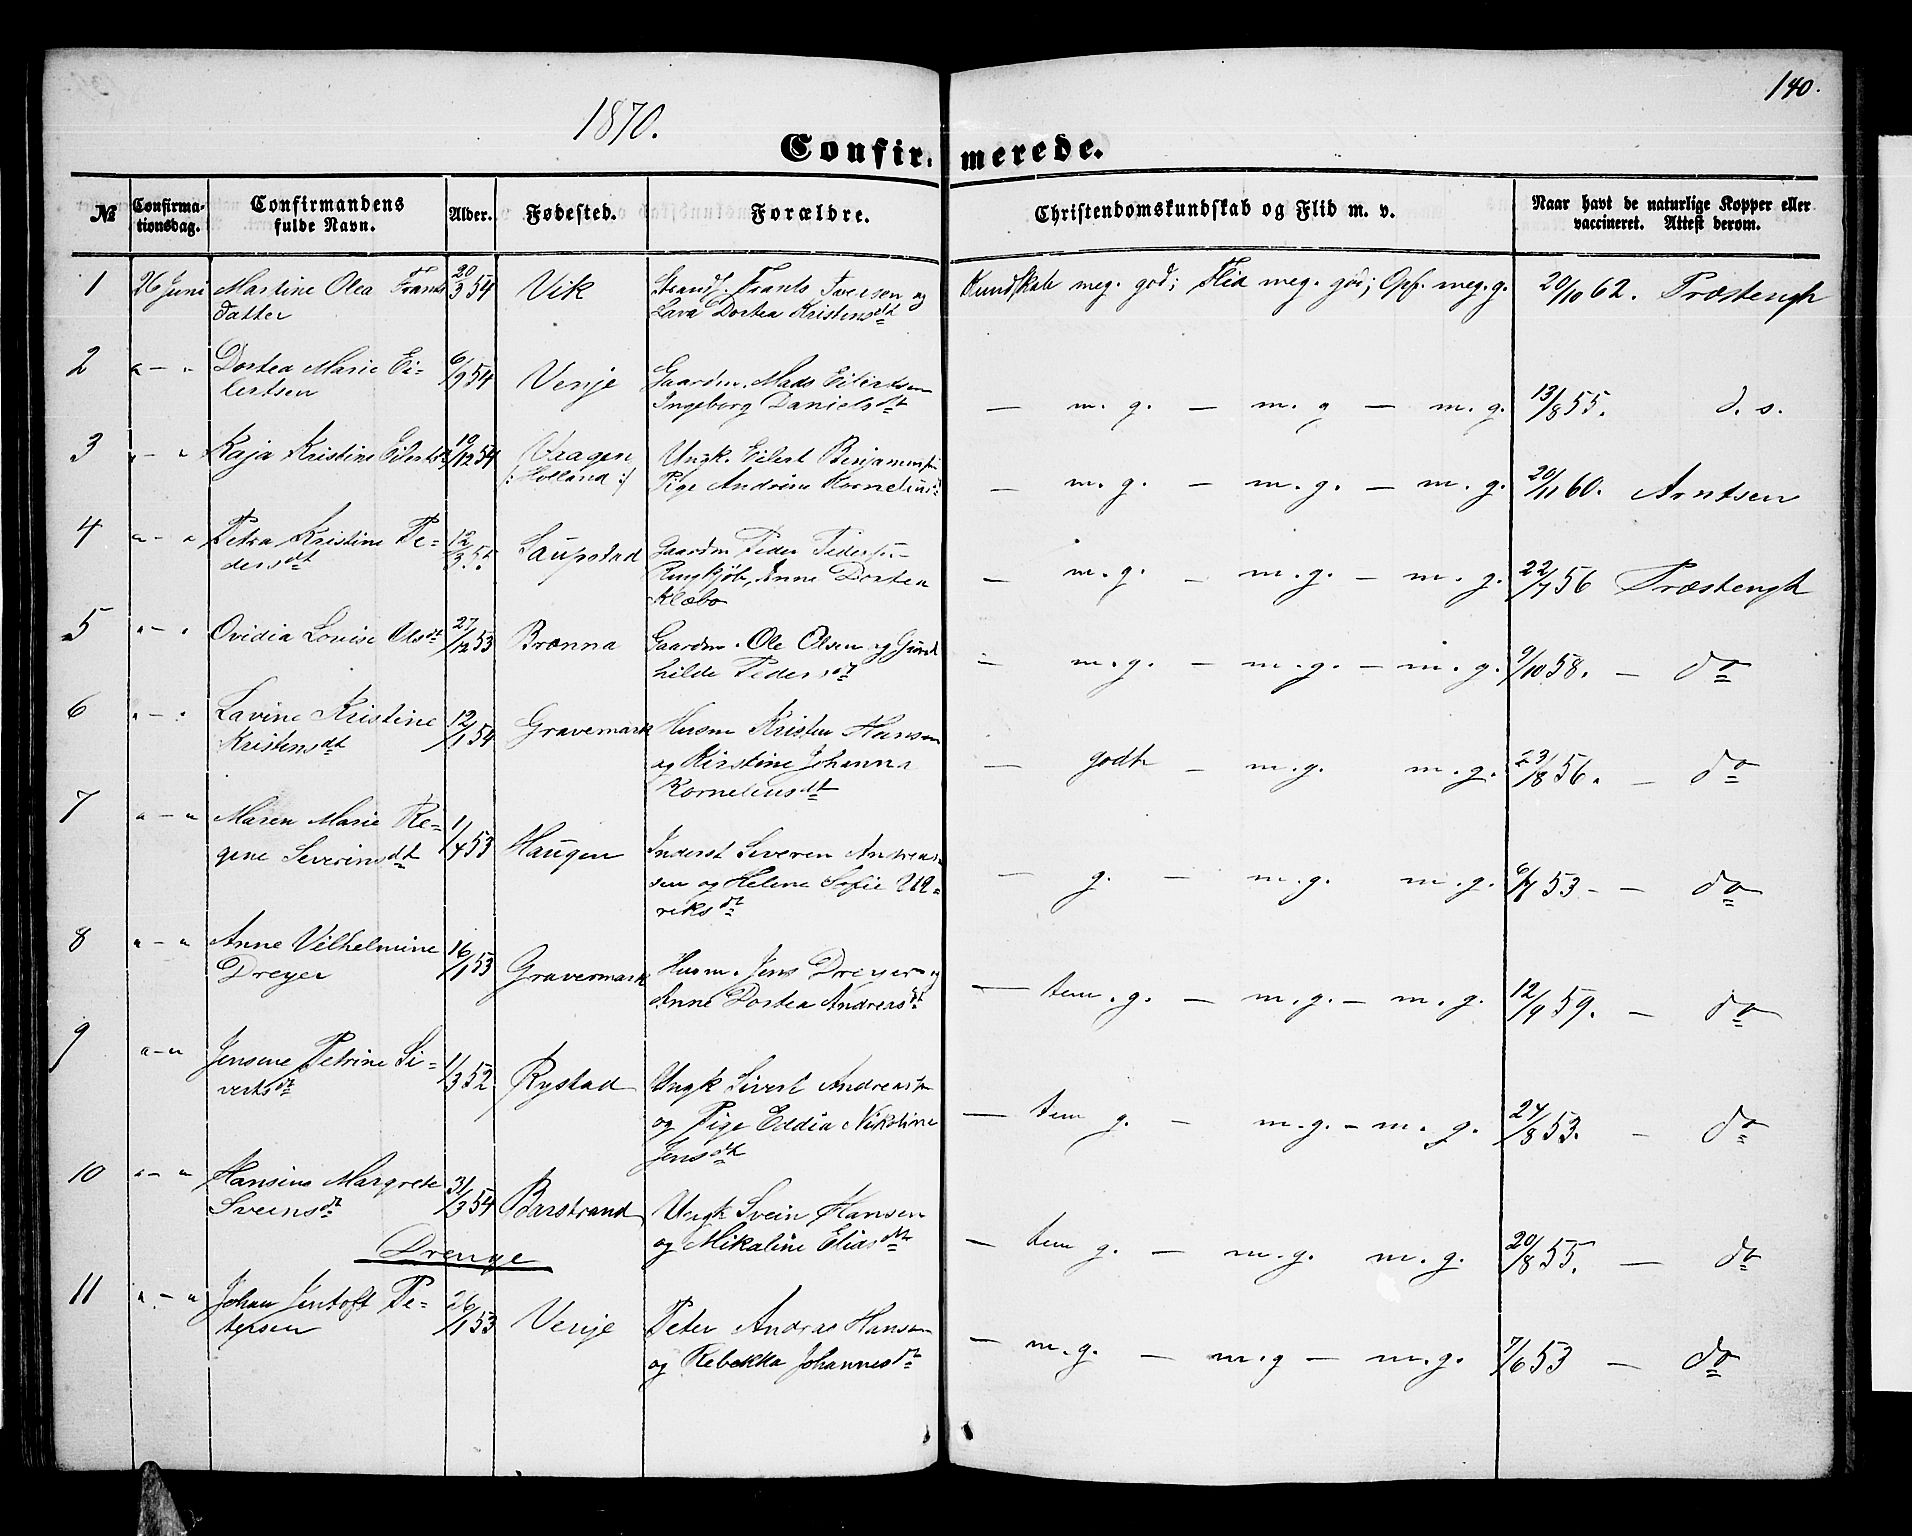 140.
1870.
Confirmerede.
№ Confirmationsdag. Confirmandens fulde Navn. Alder. Fødested. Forældre. Christendomskundskab og Flid m. v. Naar havt de naturlige Kopper eller vaccineret. Attest derom.
1 26 Juni Martine Olea Frants 20/3 54 Vik Strands. Frants Iversen og Kundskab meg. god; Flid meg. god; Opf. meg. g. 20/10 62. Præstengh
datter Lava Dortea Kristensdt
2 " — " Dortea Marie Ei- 6/9 54 Venje Gaardm. Mads Eilertsen
lertsen Ingeborg Danielsdt — m. g. — m. g — m. g. 13/8 55. d. s.
3 " — " Kaja Kristine Eilertsdt 19/12 54 Vragen Ungk. Eilert Benjaminsen
/: Holland :/ Pige Andrine Kornelius — m. g. — m. g. — m. g. 20/11 60. Arntsen
4 " — " Petra Kristine Pe- 12/3 55. Saupstad Gaardm Peder Peders
dersdt Ringkjøb, Anne Dortea — m. g. — m. g. — m. g. 22/7 56 Præstengh
Klæbo
5 " — " Ovidia Lovise Olsdt 27/12 53 Brænna Gaardm. Ole Olsen og Gund
hilde Pedersdt — m. g. — m. g. — m. g. 9/10 58. — do
6 " — " Lavine Kristine 12/1 54 Gravermark Husm Kristen Hansen
Kristensdt og Kirstine Johanna — godt — m. g. m. g. 23/8 56. — do
Korneliusdt
7 " — " Maren Marie Re- 1/4 53 Haugen Inderst Severen Andreas-
gine Severinsdt sen og Helene Sofie Ul- — g. — m. g. m. g. 6/7 53 — — do
riksdt
8 " — " Anne Vilhelmine 16/1 53 Gravermark Husm. Jens Dreyer og
Dreyer Anne Dortea Andreasdt — tem. g. — m. g. — m. g. 12/9 59. — do
9 " — " Jensine Petrine Si- 1/3 52 Rystad Ungk Sivert Andreassen
vertsdt og Pige Eddia Nikoline — tem g. — m. g. — m. g. 24/8 53. — do
Jensdt
10 " — " Hansine Margrete 31/3 54 Barstrand Ungk Svein Hansen
Sveinsdt og Mikaline Eliasdt — tem g. — m. g. m. g. 20/8 55. — do
Drenge
11 " — " Johan Jentoft Pe- 26/1 53 Venje Peter Andras Hansen — m. g. — m. g — m. g. 7/6 53 — do
tersen og Rebekka Johannesdt